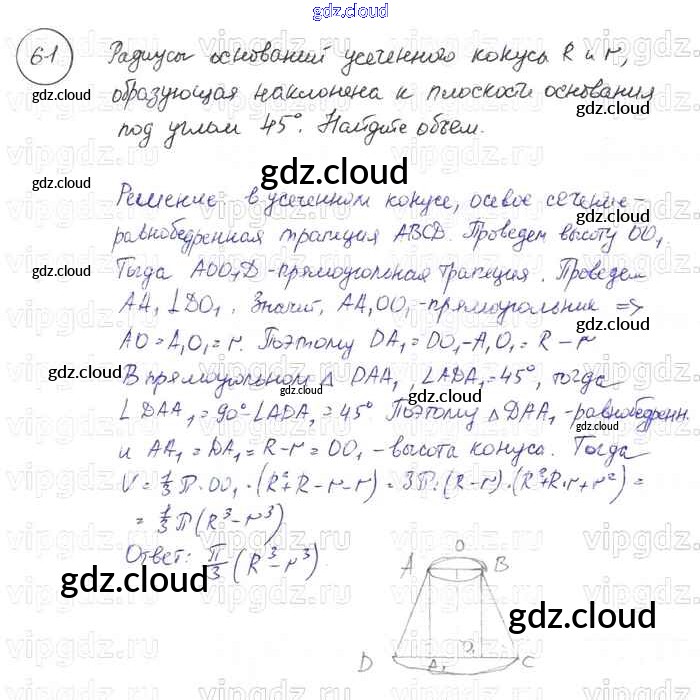 gdz.cloud
61 Радиусы оснований усеченного конуса R и r,
образующая наклонена к плоскости основания
под углом 45°. Найдите объем.
gdz.cloud
gdz.cloud
gdz.cloud
Решение: в усеченном конусе, осевое сечение -
равнобедренная трапеция ABCD. Проведем высоту OO₁
Тогда AOO₁D - прямоугольная трапеция. Проведем
AA₁ ⊥ DO₁. Значит, AA₁OO₁ - прямоугольник =>
AO = A₁O₁ = r. Поэтому DA₁ = DO₁ - A₁O₁ = R - r
В прямоугольном △ DAA₁, ∠ADA₁ = 45°, тогда
∠DAA₁ = 90° ∠ADA₁ = 45° Поэтому △DAA₁ - равнобедренн.
и AA₁ = DA₁ = R - r = OO₁ - высота конуса. Тогда
V = ⅓ π · OO₁ · (R² + R - r - r) = 3π · (R - r) · (R² + R·r + r²) =
= ⅓ π (R³ - r³)
Ответ: π/3 (R³ - r³)
gdz.cloud
gdz.cloud
gdz.cloud
O
A B
O₁
D A₁ C
vipgdz.ru